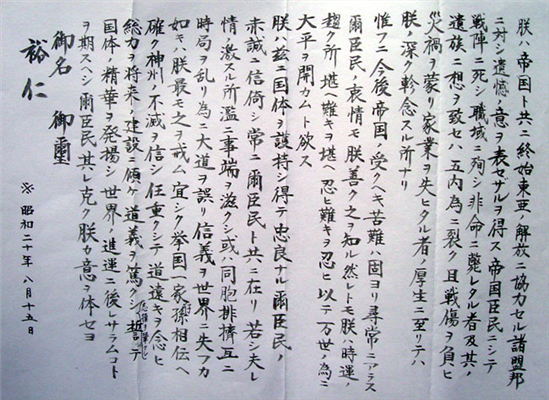 朕ハ帝国ト共ニ終始東亜ノ解放ニ協力セル諸盟邦
ニ対シ遺憾ノ意ヲ表セサルヲ得ス帝国臣民ニシテ
戦陣ニ死シ職域ニ殉シ非命ニ斃レタル者及其ノ
遺族ニ想ヲ致セハ五内為ニ裂ク且戦傷ヲ負ヒ
災禍ヲ蒙リ家業ヲ失ヒタル者ノ厚生ニ至リテハ
朕ノ深ク軫念スル所ナリ
惟フニ今後帝国ノ受クヘキ苦難ハ固ヨリ尋常ニアラス
爾臣民ノ衷情モ朕善ク之ヲ知ル然レトモ朕ハ時運ノ
趨ク所堪ヘ難キヲ堪ヘ忍ヒ難キヲ忍ヒ以テ万世ノ為ニ
大平ヲ開カムト欲ス
朕ハ茲ニ国体ヲ護持シ得テ忠良ナル爾臣民ノ
赤誠ニ信倚シ常ニ爾臣民ト共ニ在リ若シ夫レ
情ノ激スル所濫ニ事端ヲ滋クシ或ハ同胞排擠互ニ
時局ヲ乱リ為ニ大道ヲ誤リ信義ヲ世界ニ失フカ
如キハ朕最モ之ヲ戒ム宜シク挙国一家孫相伝ヘ
確ク神州ノ不滅ヲ信シ任重クシテ道遠キヲ念ヒ
総力ヲ将来ノ建設ニ傾ケ道義ヲ篤クシ哲テ
国体ノ精華ヲ発揚シ世界ノ進運ニ後レサラムコト
ヲ期スヘシ爾臣民其レ克ク朕カ意ヲ体セヨ
御名 御璽
裕仁
※ 昭和二十年八月十五日